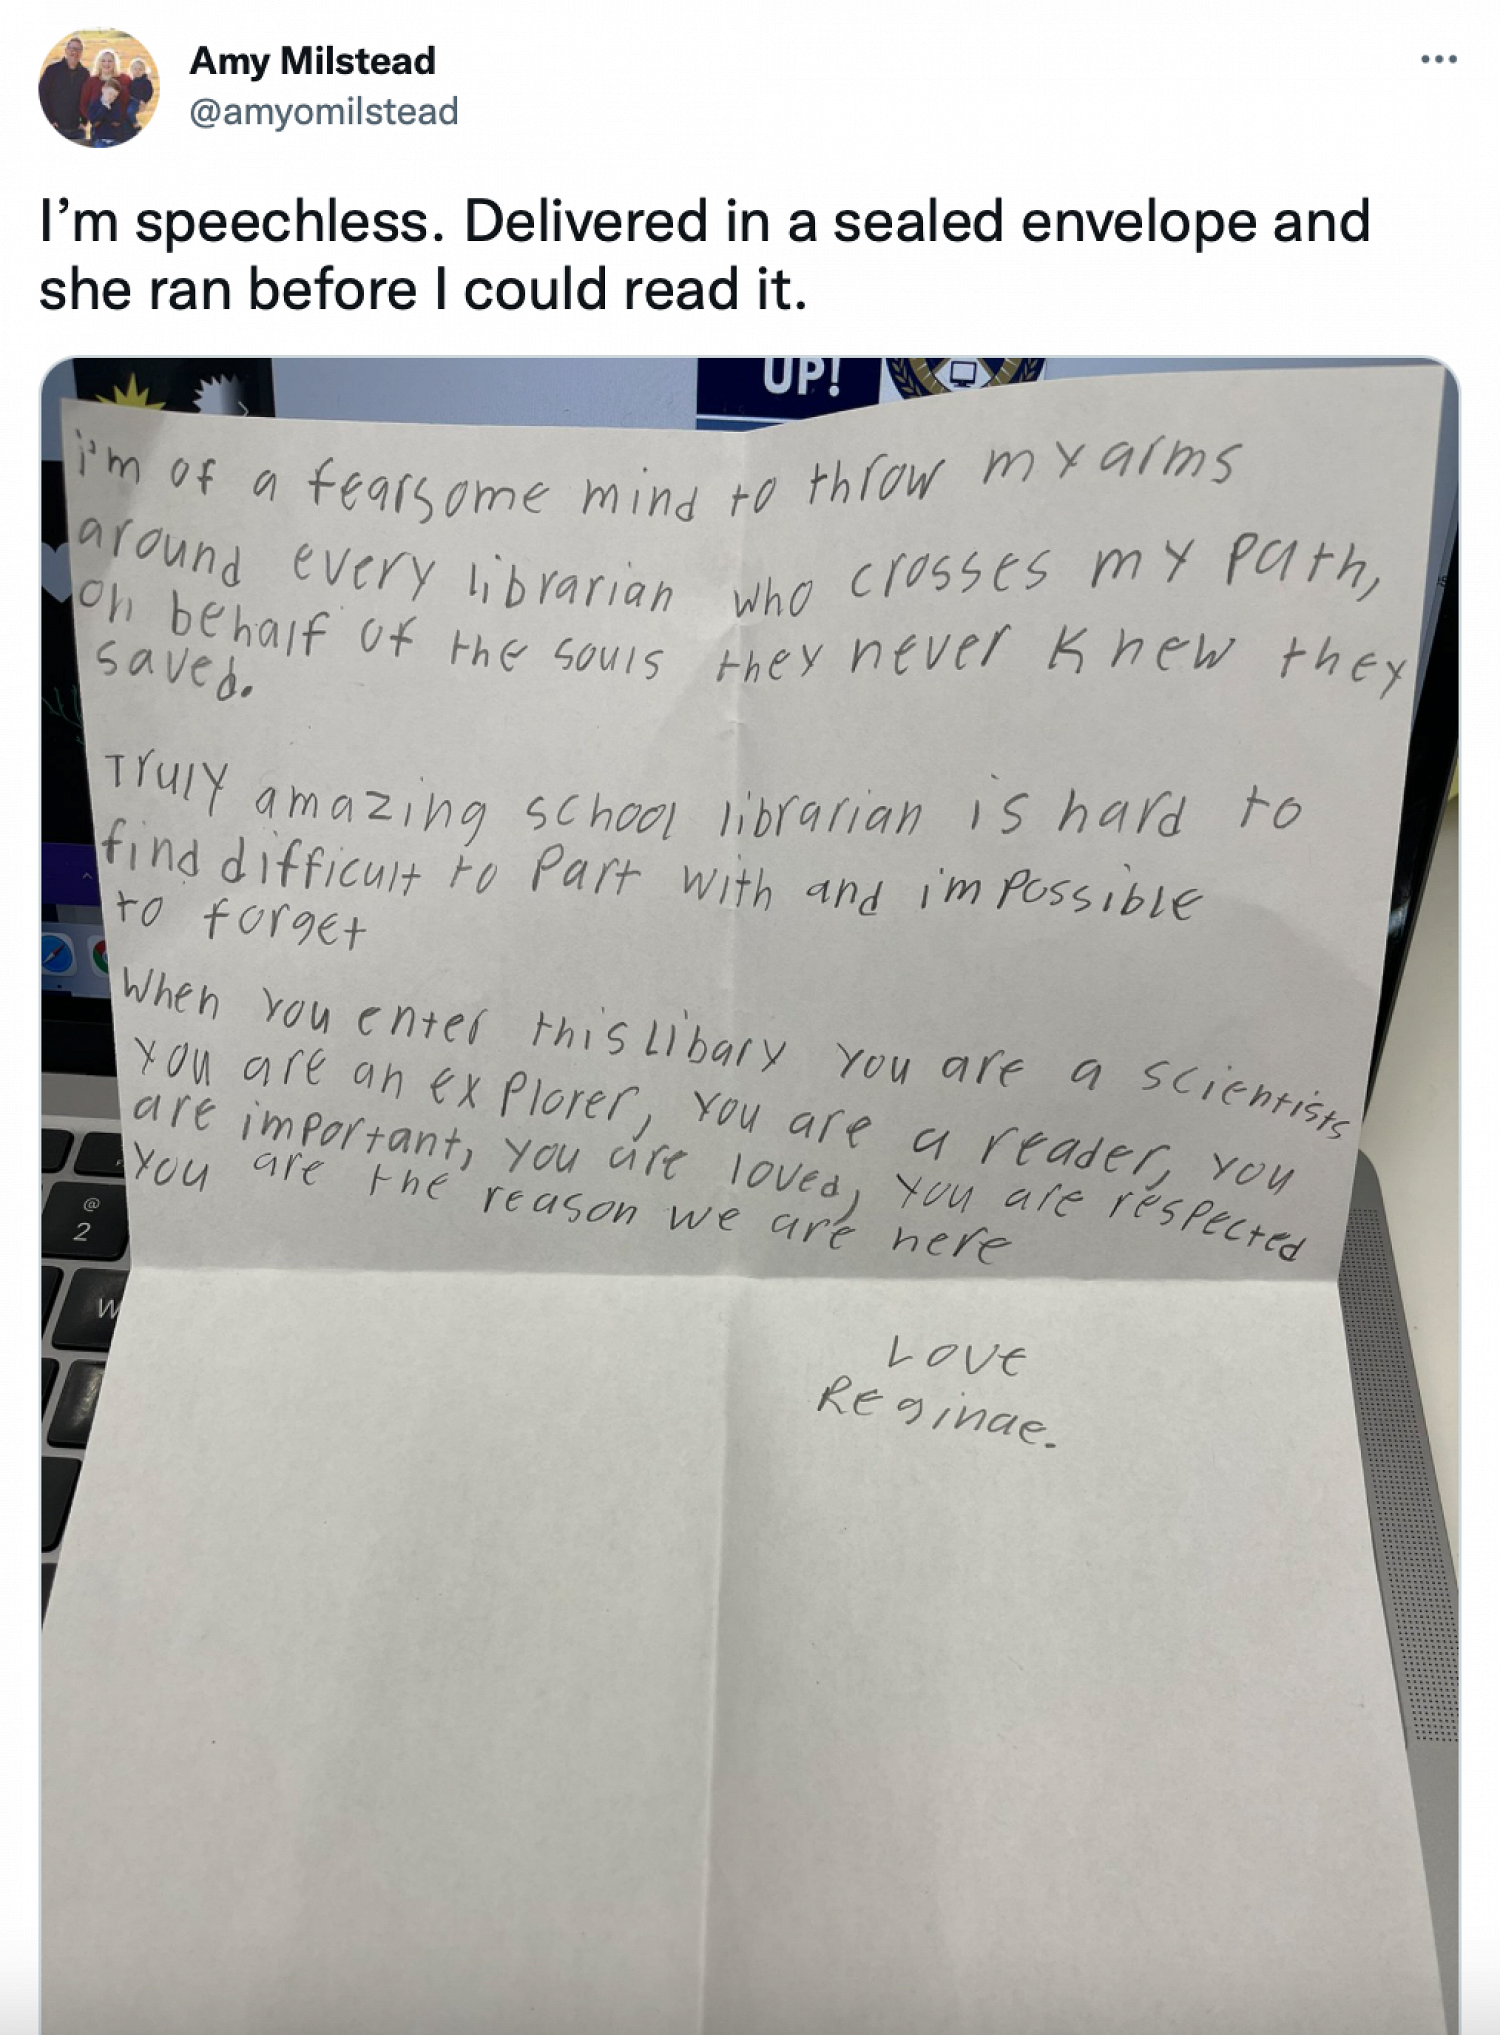 Amy Milstead
@amyomilstead
I’m speechless. Delivered in a sealed envelope and
she ran before I could read it.
UP!
i'm of a fearsome mind to throw my arms
around every librarian who crosses my path,
on behalf of the souls they never knew they
saved.
Truly amazing school librarian is hard to
find difficult to part with and impossible
to forget
When you enter this libary you are a scientists
you are an explorer, you are a reader, you
are important, you are loved, you are respected
you are the reason we are here
Love
Reginae.
@
2
W